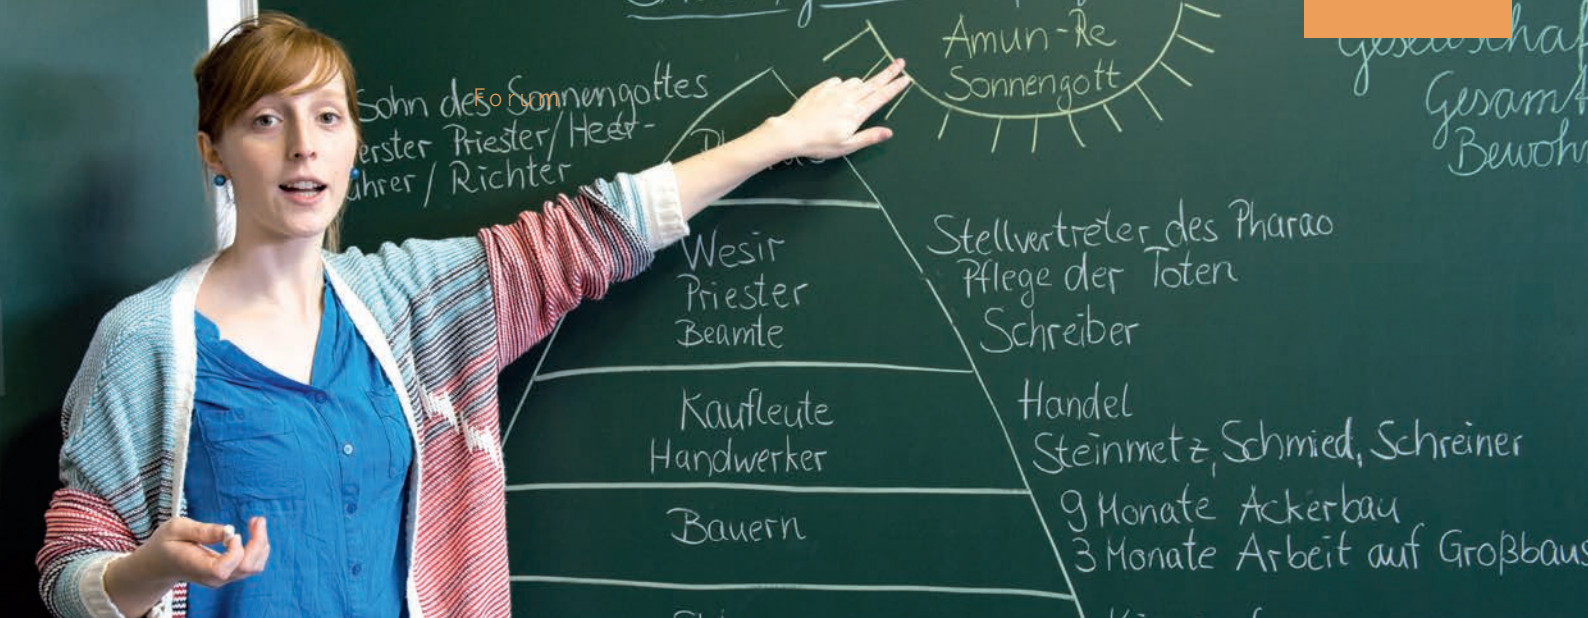 Amun-Re
Sonnengott
Sohn des Sonnengottes
erster Priester/Heer-
ührer / Richter
Forum
Wesir
Priester
Beamte
Stellvertreter des Pharao
Pflege der Toten
Schreiber
Kaufleute
Handwerker
Handel
Steinmetz, Schmied, Schreiner
Bauern
9 Monate Ackerbau
3 Monate Arbeit auf Großbaus
Gesamt
Bewohn